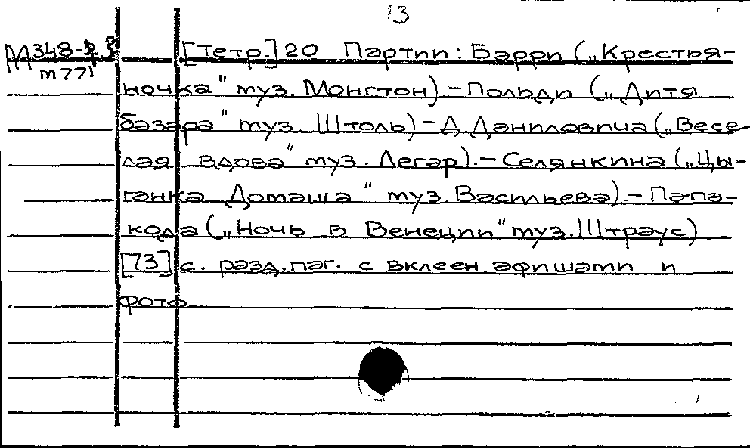 13
М 348-2 [Тетр.] 20 Партии: Барри („Крестья-
т 771
ночка" муз. Монктон).-Польди („Дитя
базара" муз. Штоль)-Д. Даниловича („Весе-
лая вдова" муз. Легар).-Селянкина („Цы-
ганка Домаша" муз. Васильева).-Папа-
кода („Ночь в Венеции" муз. Штраус)
[73] с. разд. паг. с вклеен. афишами и
фото